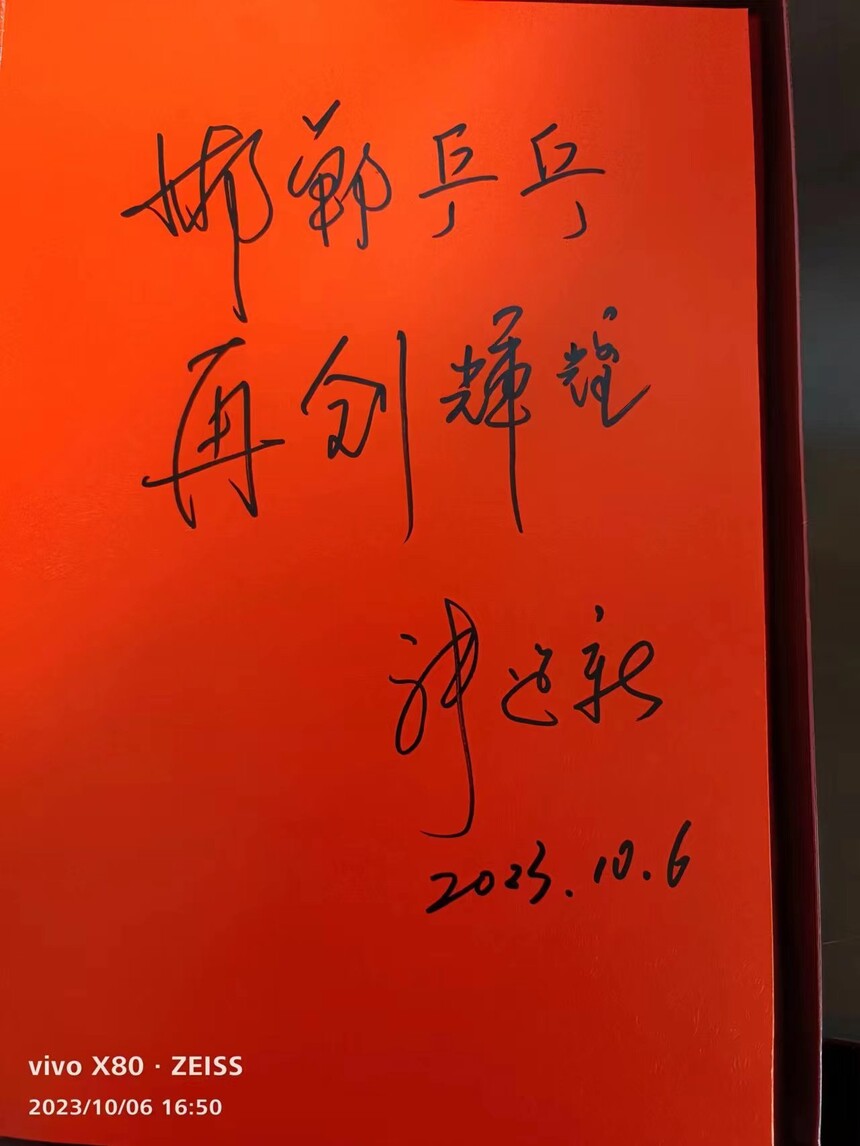 邯郸乒乓
再创輝煌
2023.10.6
vivo X80 · ZEISS
2023/10/06 16:50